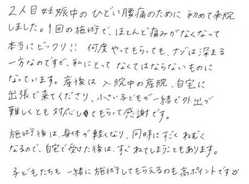 2人目妊娠中のひどい腰痛のために初めて来院
しました。1回の施術で、ほとんど痛みがなくなって
本当にビックリ!! 何度やってもらっても、ナゾは深まる
一方なのですが、私にとってなくてはならないものに
なっています。産後は入院中の産院、自宅に
出張で来てくださり、小さい子どもが一緒で外出が
難しくとも対応してもらって感謝です。
施術後は身体が軽くなり、同時にすごくねむく
なるので、自宅で受けた後は、すぐねてしまうこともあります。
子どもたちも一緒に施術してもらえるのも高ポイントですが